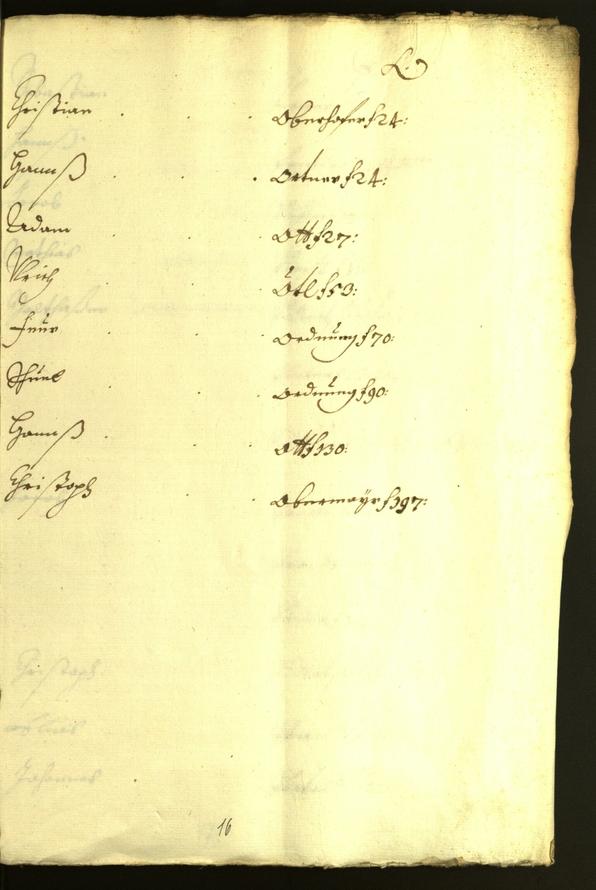 O.
Christian . . . Oberhofer f 24:
Hannß . . . Ortner f 24:
Adam . . . Ott f 27:
Ulrich . . . Ötl f 53:
Feur . . . Ordnung f 70:
Schuel . . . Ordnung f 90:
Hannß . . . Ott f 130:
Christoph . . . Obermayr f 197:
16